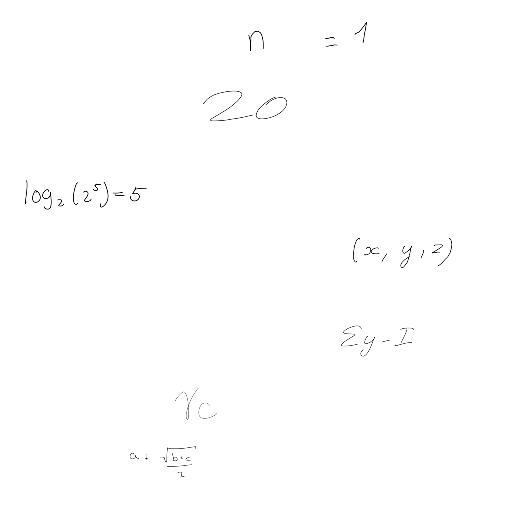 n = 1
20
log₂(2⁵) = 5
(x, y, z)
Σy - I
γc